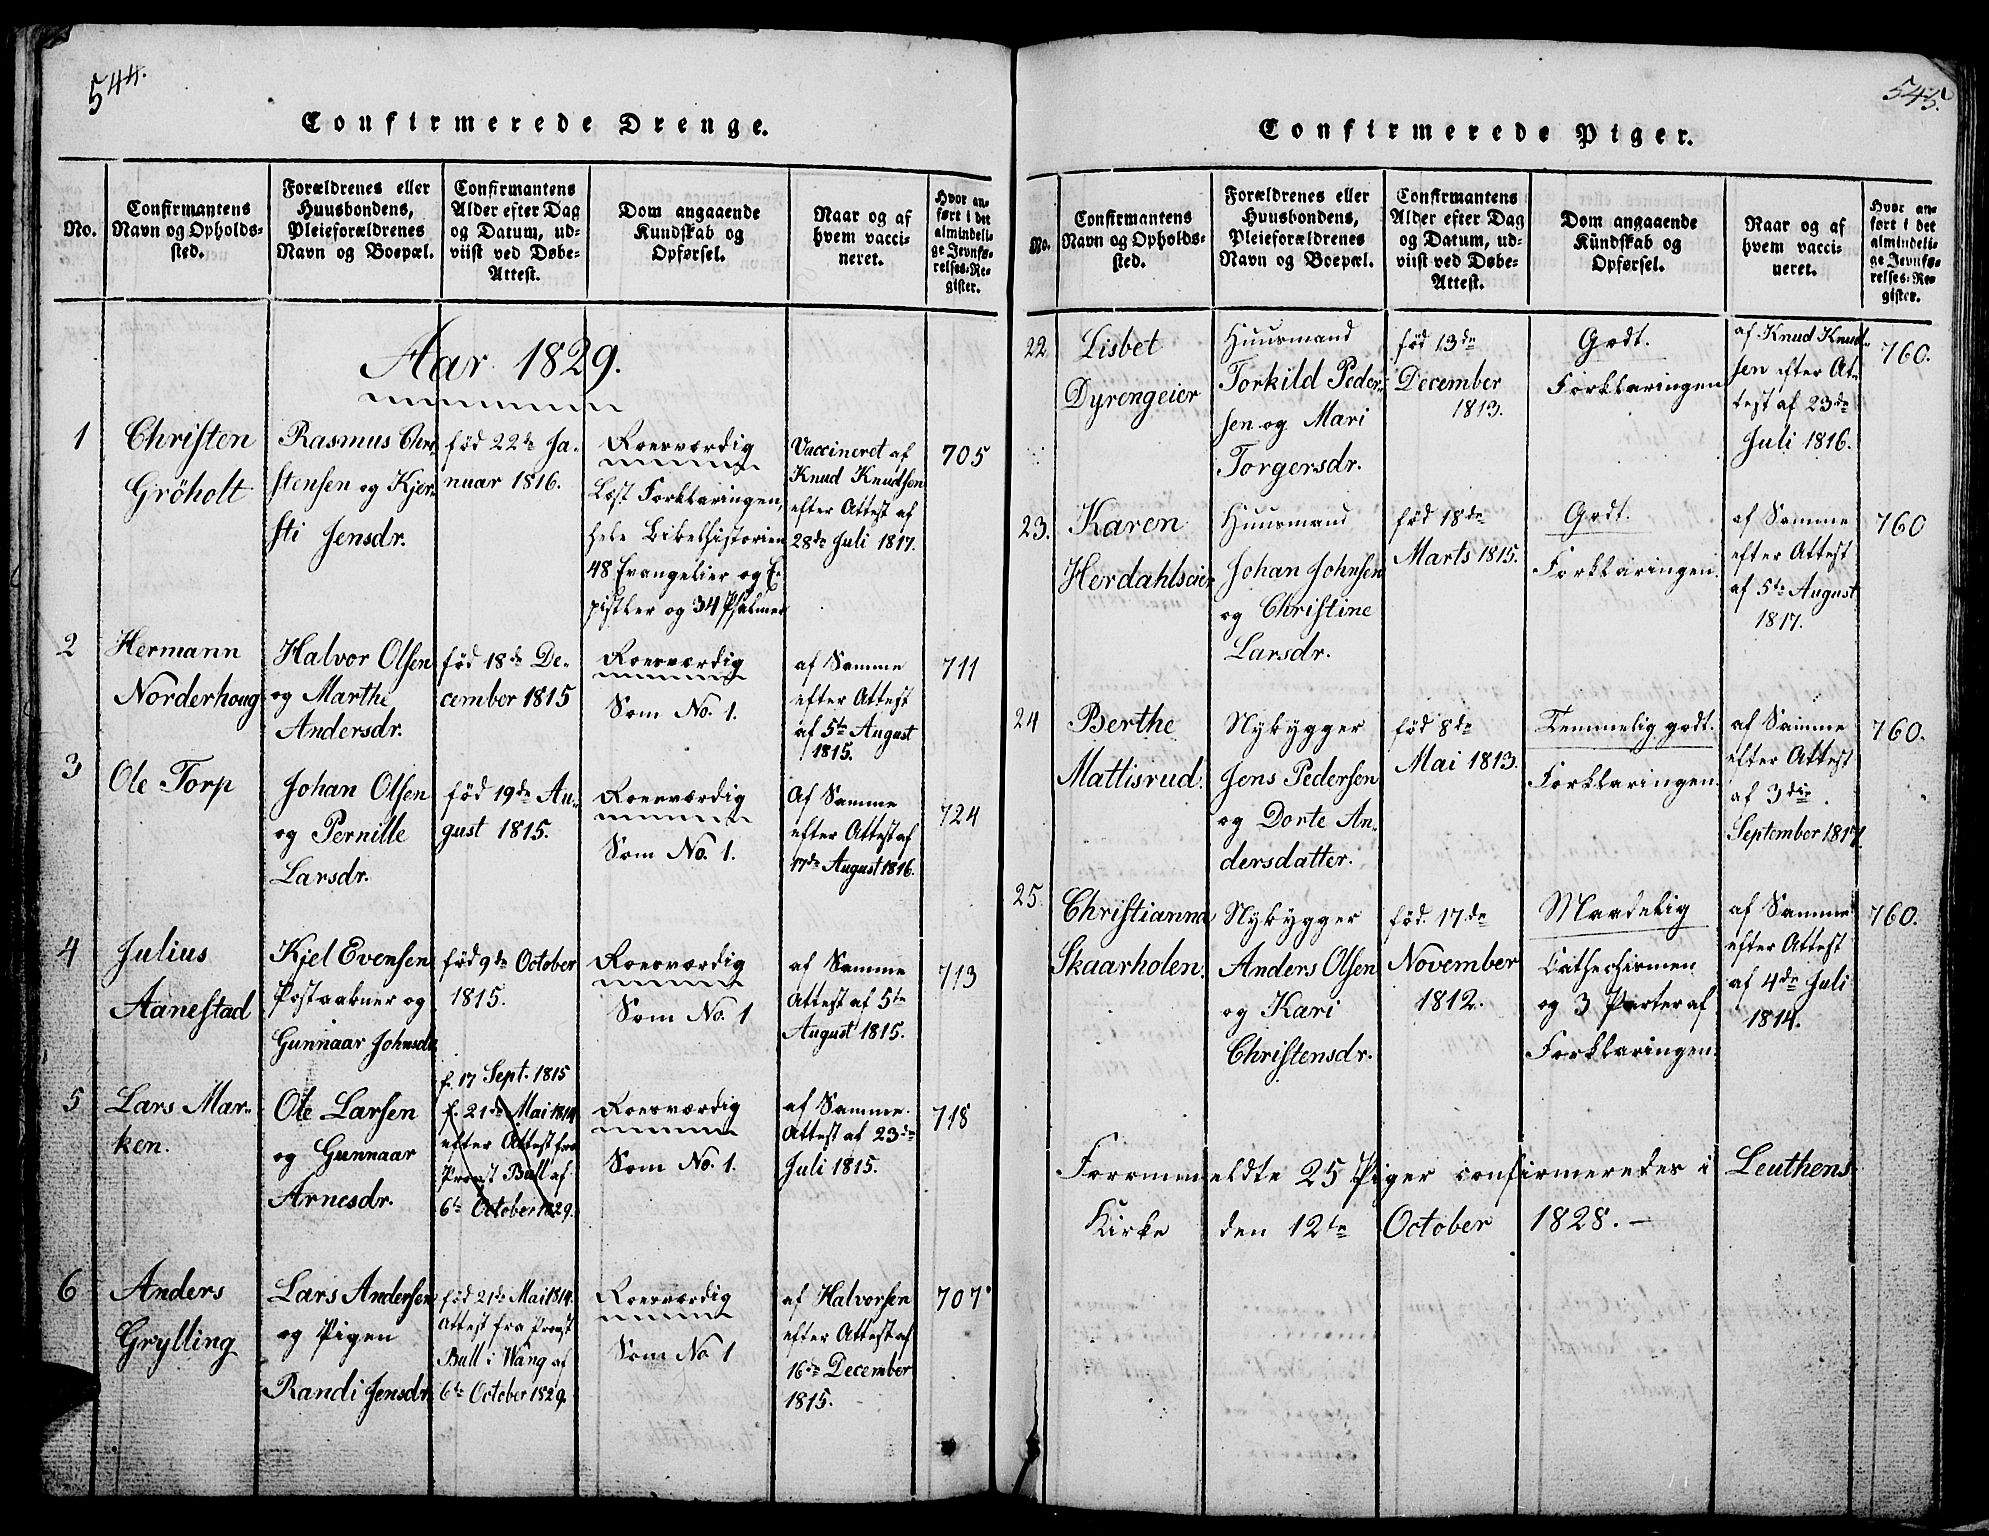 544.
Confirmerede Drenge.
No.
Confirmantens
Navn og Opholds-
sted.
Forældrenes eller
Huusbondens,
Pleieforældrenes
Navn og Boepæl.
Confirmantens
Alder efter Dag
og Datum, ud-
viist ved Døbe-
Attest.
Dom angaaende
Kundskab og
Opførsel.
Naar og af
hvem vacci-
neret.
Hvor an-
ført i det
almindeli-
ge Jevnfø-
relses-Re-
gister.
Aar 1829.
1
Christen
Gröholt
Rasmus Chri-
stensen og Kjer-
sti Jensdr.
föd 22de Ja-
nuar 1816.
Roesværdig
Læst Forklaringen,
hele Bibelhistorien
48 Evangelier og E-
pistler og 34 Psalmer
Vaccineret af
Knud Knudsen
efter Attest af
28de Juli 1817.
705
2
Hermann
Norderhoug
Halvor Olsen
og Marthe
Andersdr.
föd 18de De-
cember 1815
Roesværdig
Som No. 1.
af Samme
efter Attest
af 5te August
1815.
711
3
Ole Torp
Johan Olsen
og Pernille
Larsdr.
föd 19de Au-
gust 1815.
Roesværdig
Som No. 1.
Af Samme
efter Attest af
17de August 1816.
724
4
Julius
Aanestad
Kjel Evensen
Postaabner og
Gunnaar Johnsdr
föd 9de October
1815.
Roesværdig
Som No. 1
af Samme
Attest af 5te
August 1815.
713
5
Lars Mar-
ken.
Ole Larsen
og Gunnaar
Arnesdr.
f. 17 Sept. 1815
f. 21de Mai 1814
efter Attest fra
Provst Bull af
6te October 1829.
Roesværdig
Som No. 1.
af Samme.
Attest af 23de
Juli 1815.
718
6
Anders
Grylling
Lars Andersen
og Pigen
Randi Jensdr.
föd 21de Mai 1814.
Attest fra Provst
Bull i Wang af
6te October 1829.
Roesværdig
Som No 1
af Halvorsen
efter Attest af
16de December
1815.
707
545.
Confirmerede Piger.
No.
Confirmantens
Navn og Opholds-
sted.
Forældrenes eller
Huusbondens,
Pleieforældrenes
Navn og Boepæl.
Confirmantens
Alder efter Dag
og Datum, ud-
viist ved Døbe-
Attest.
Dom angaaende
Kundskab og
Opførsel.
Naar og af
hvem vacci-
neret.
Hvor an-
ført i det
almindeli-
ge Jevnfø-
relses-Re-
gister.
22
Lisbet
Dyrengeier
Huusmand
Torkild Peder-
sen og Mari
Torgersdr.
föd 13de
December
1813.
Godt.
Forklaringen
af Knud Knud-
sen efter At-
test af 23de
Juli 1816.
760.
23.
Karen
Herdahlseier
Huusmand
Johan Johnsen
og Christine
Larsdr.
föd 18de
Marts 1815.
Godt.
Forklaringen.
af Samme
efter Attest
af 5te August
1817.
760
24
Berthe
Mattisrud.
Nybygger
Jens Pedersen
og Dorte An-
dersdatter.
föd 8de
Mai 1813.
Temmelig godt.
Forklaringen.
af Samme
efter Attest
af 3die
September 1817.
760.
25.
Christianna
Skaarholen.
Nybygger
Anders Olsen
og Kari
Christensdr.
föd. 17de
November
1812.
Maadelig
Cathechismen
og 3 Parter af
Forklaringen.
af Samme
efter Attest
af 4de Juli
1814.
760.
Forommeldte 25 Piger confirmeredes i Leuthens
Kirke den 12te October 1828. –